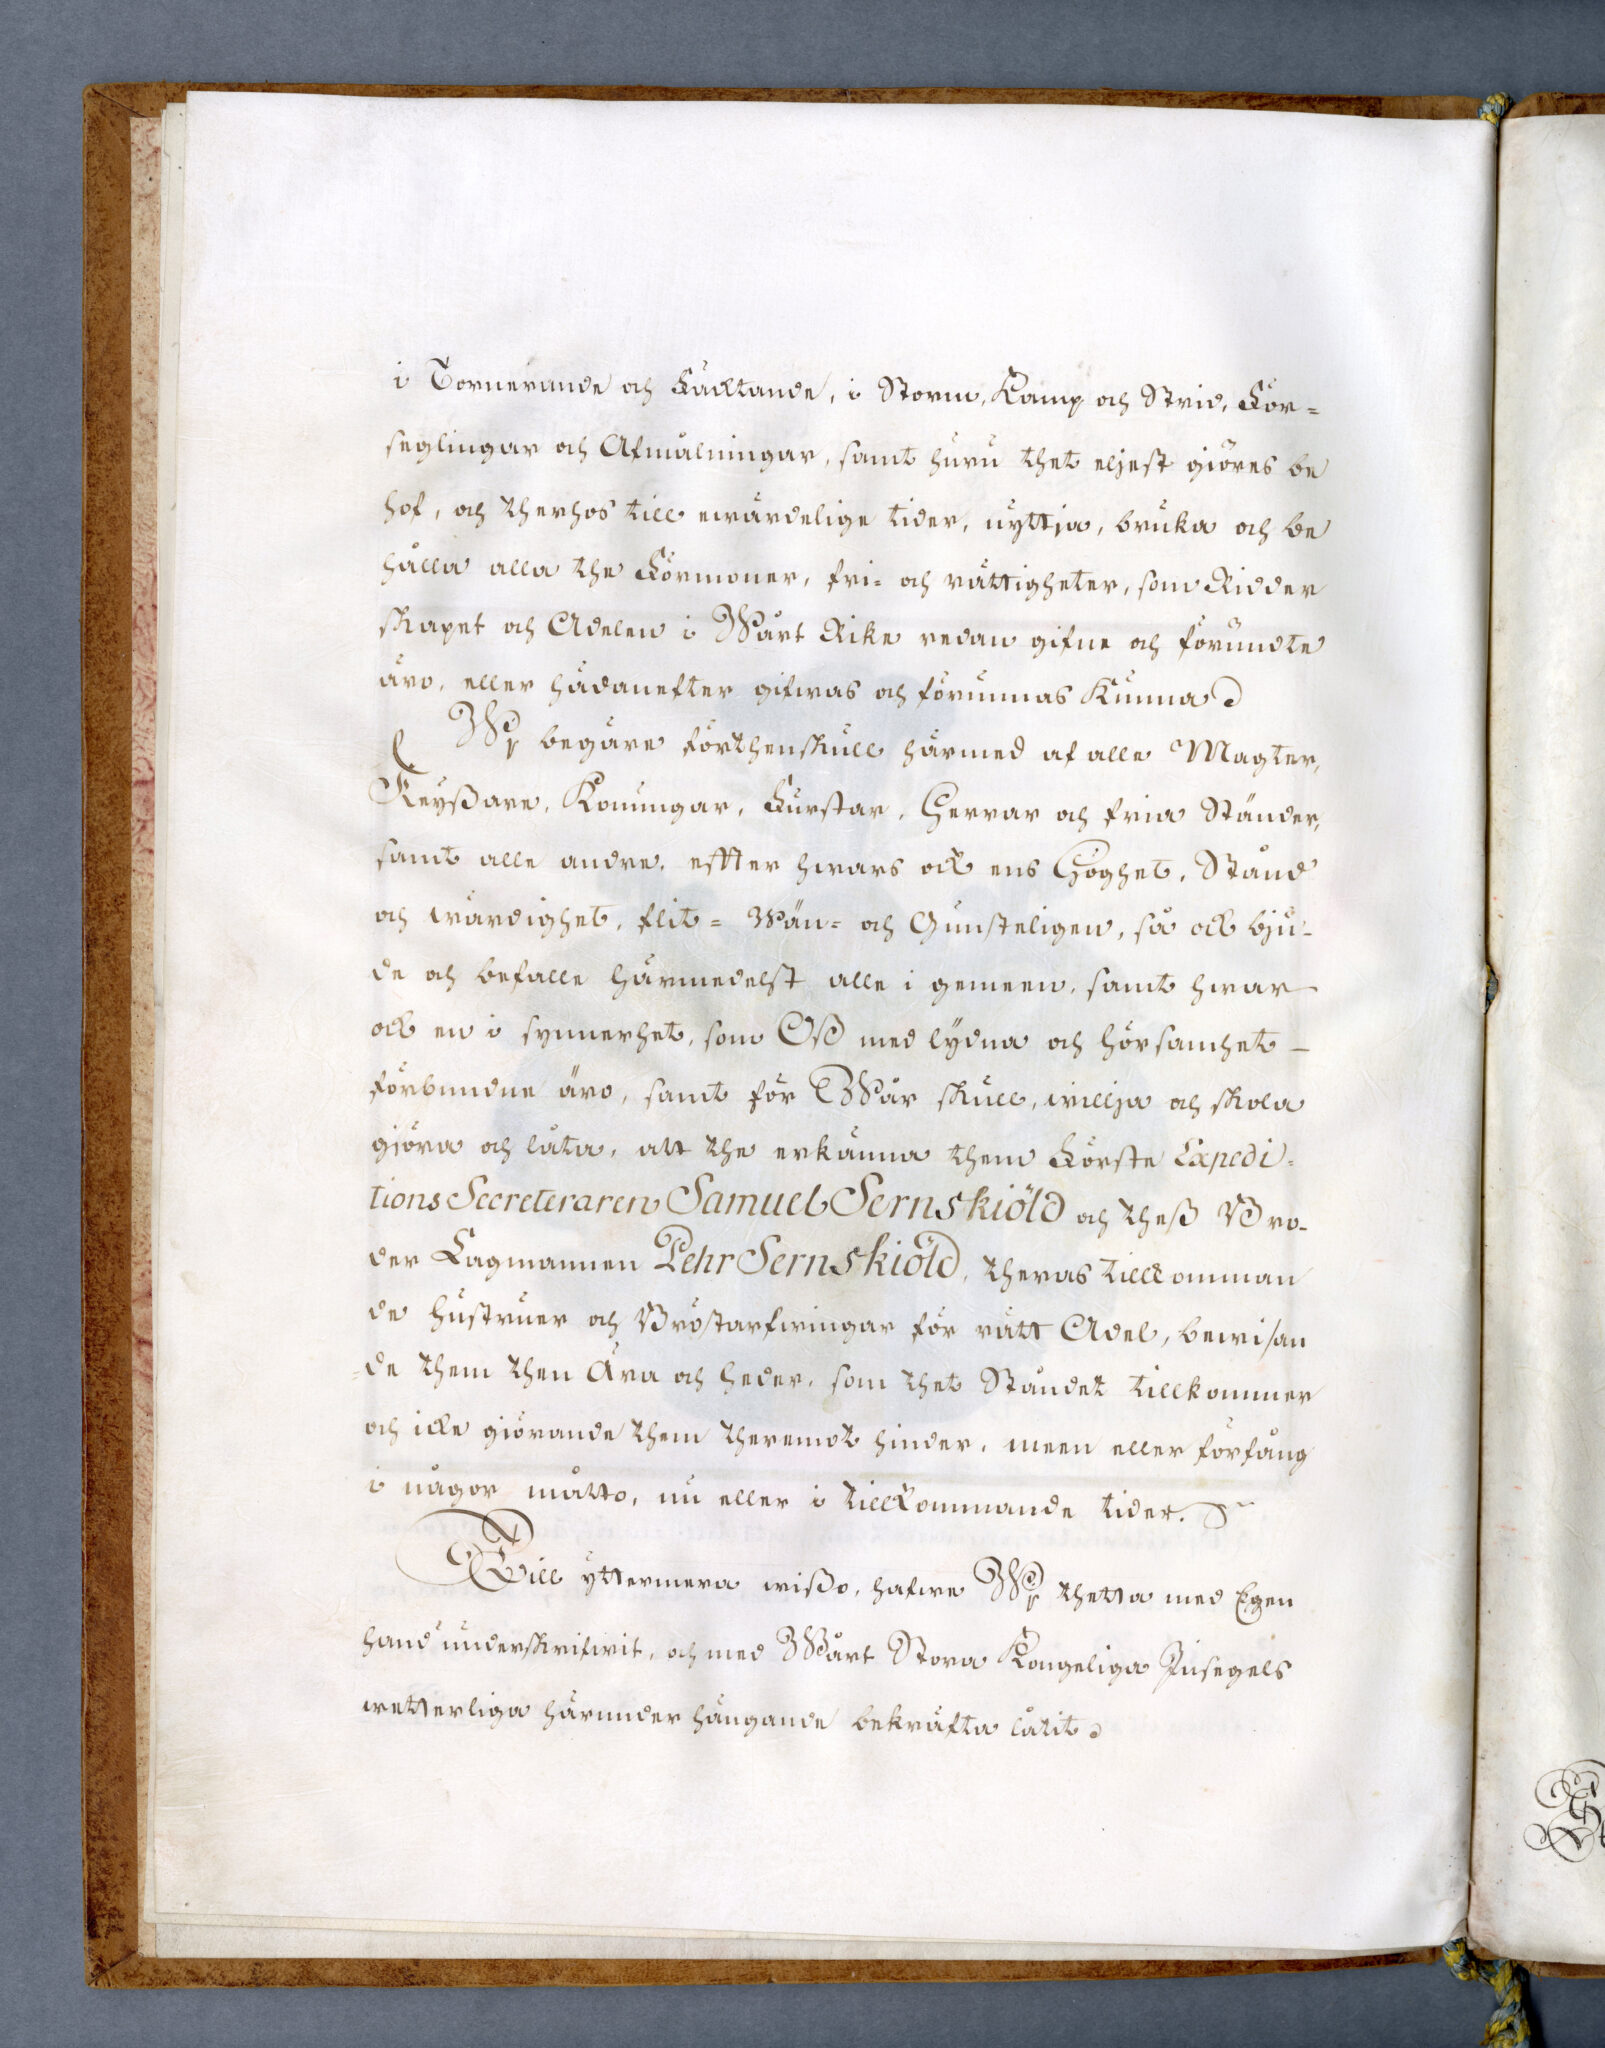 i Tornerande och Fäcktande, i Storm, Kamp och Strid, För=
seglingar och Afmålningar, samt huru thet eljest giöres be
hof, och therhos till ewärdelige tider, nyttja, bruka och be
hålla alla the Förmoner, fri= och rättigheter, som Ridder
skapet och Adelen i Wårt Rike redan gifne och förundte
äro, eller hädanefter gifwas och förunnas kunna.
Wy begäre förthenskull härmed af alle Magter,
Keyßare, Konungar, Furstar, Herrar och fria Ständer,
samt alle andre, effter hwars ock ens Höghet, Stånd
och wärdighet, flit= Wän= och Gunsteligen, så ock bju=
de och befalle härmedelst alle i gemeen, samt hwar
ock en i synnerhet, som Oß med lydna och hörsamhet
förbundne äro, samt för Wår skull, willja och skola
gjöra och låta, att the erkänna them Förste Expedi=
tions Secreteraren Samuel Sernskiöld och theß Bro=
der Lagmannen Pehr Sernskiöld, theras tillkomman
de hustruer och Bröstarfwingar för rätt Adel, bewisan
=de them then Ära och heder, som thet Ståndet tillkommer
och icke giörande them theremot hinder, meen eller förfång
i någor måtto, nu eller i tillkommande tider.
Till yttermera wißo, hafwe Wy thetta med Egen
hand underskrifwit, och med Wårt Stora Kongeliga Insegels
wetterliga härunder hängande bekräfta låtit.